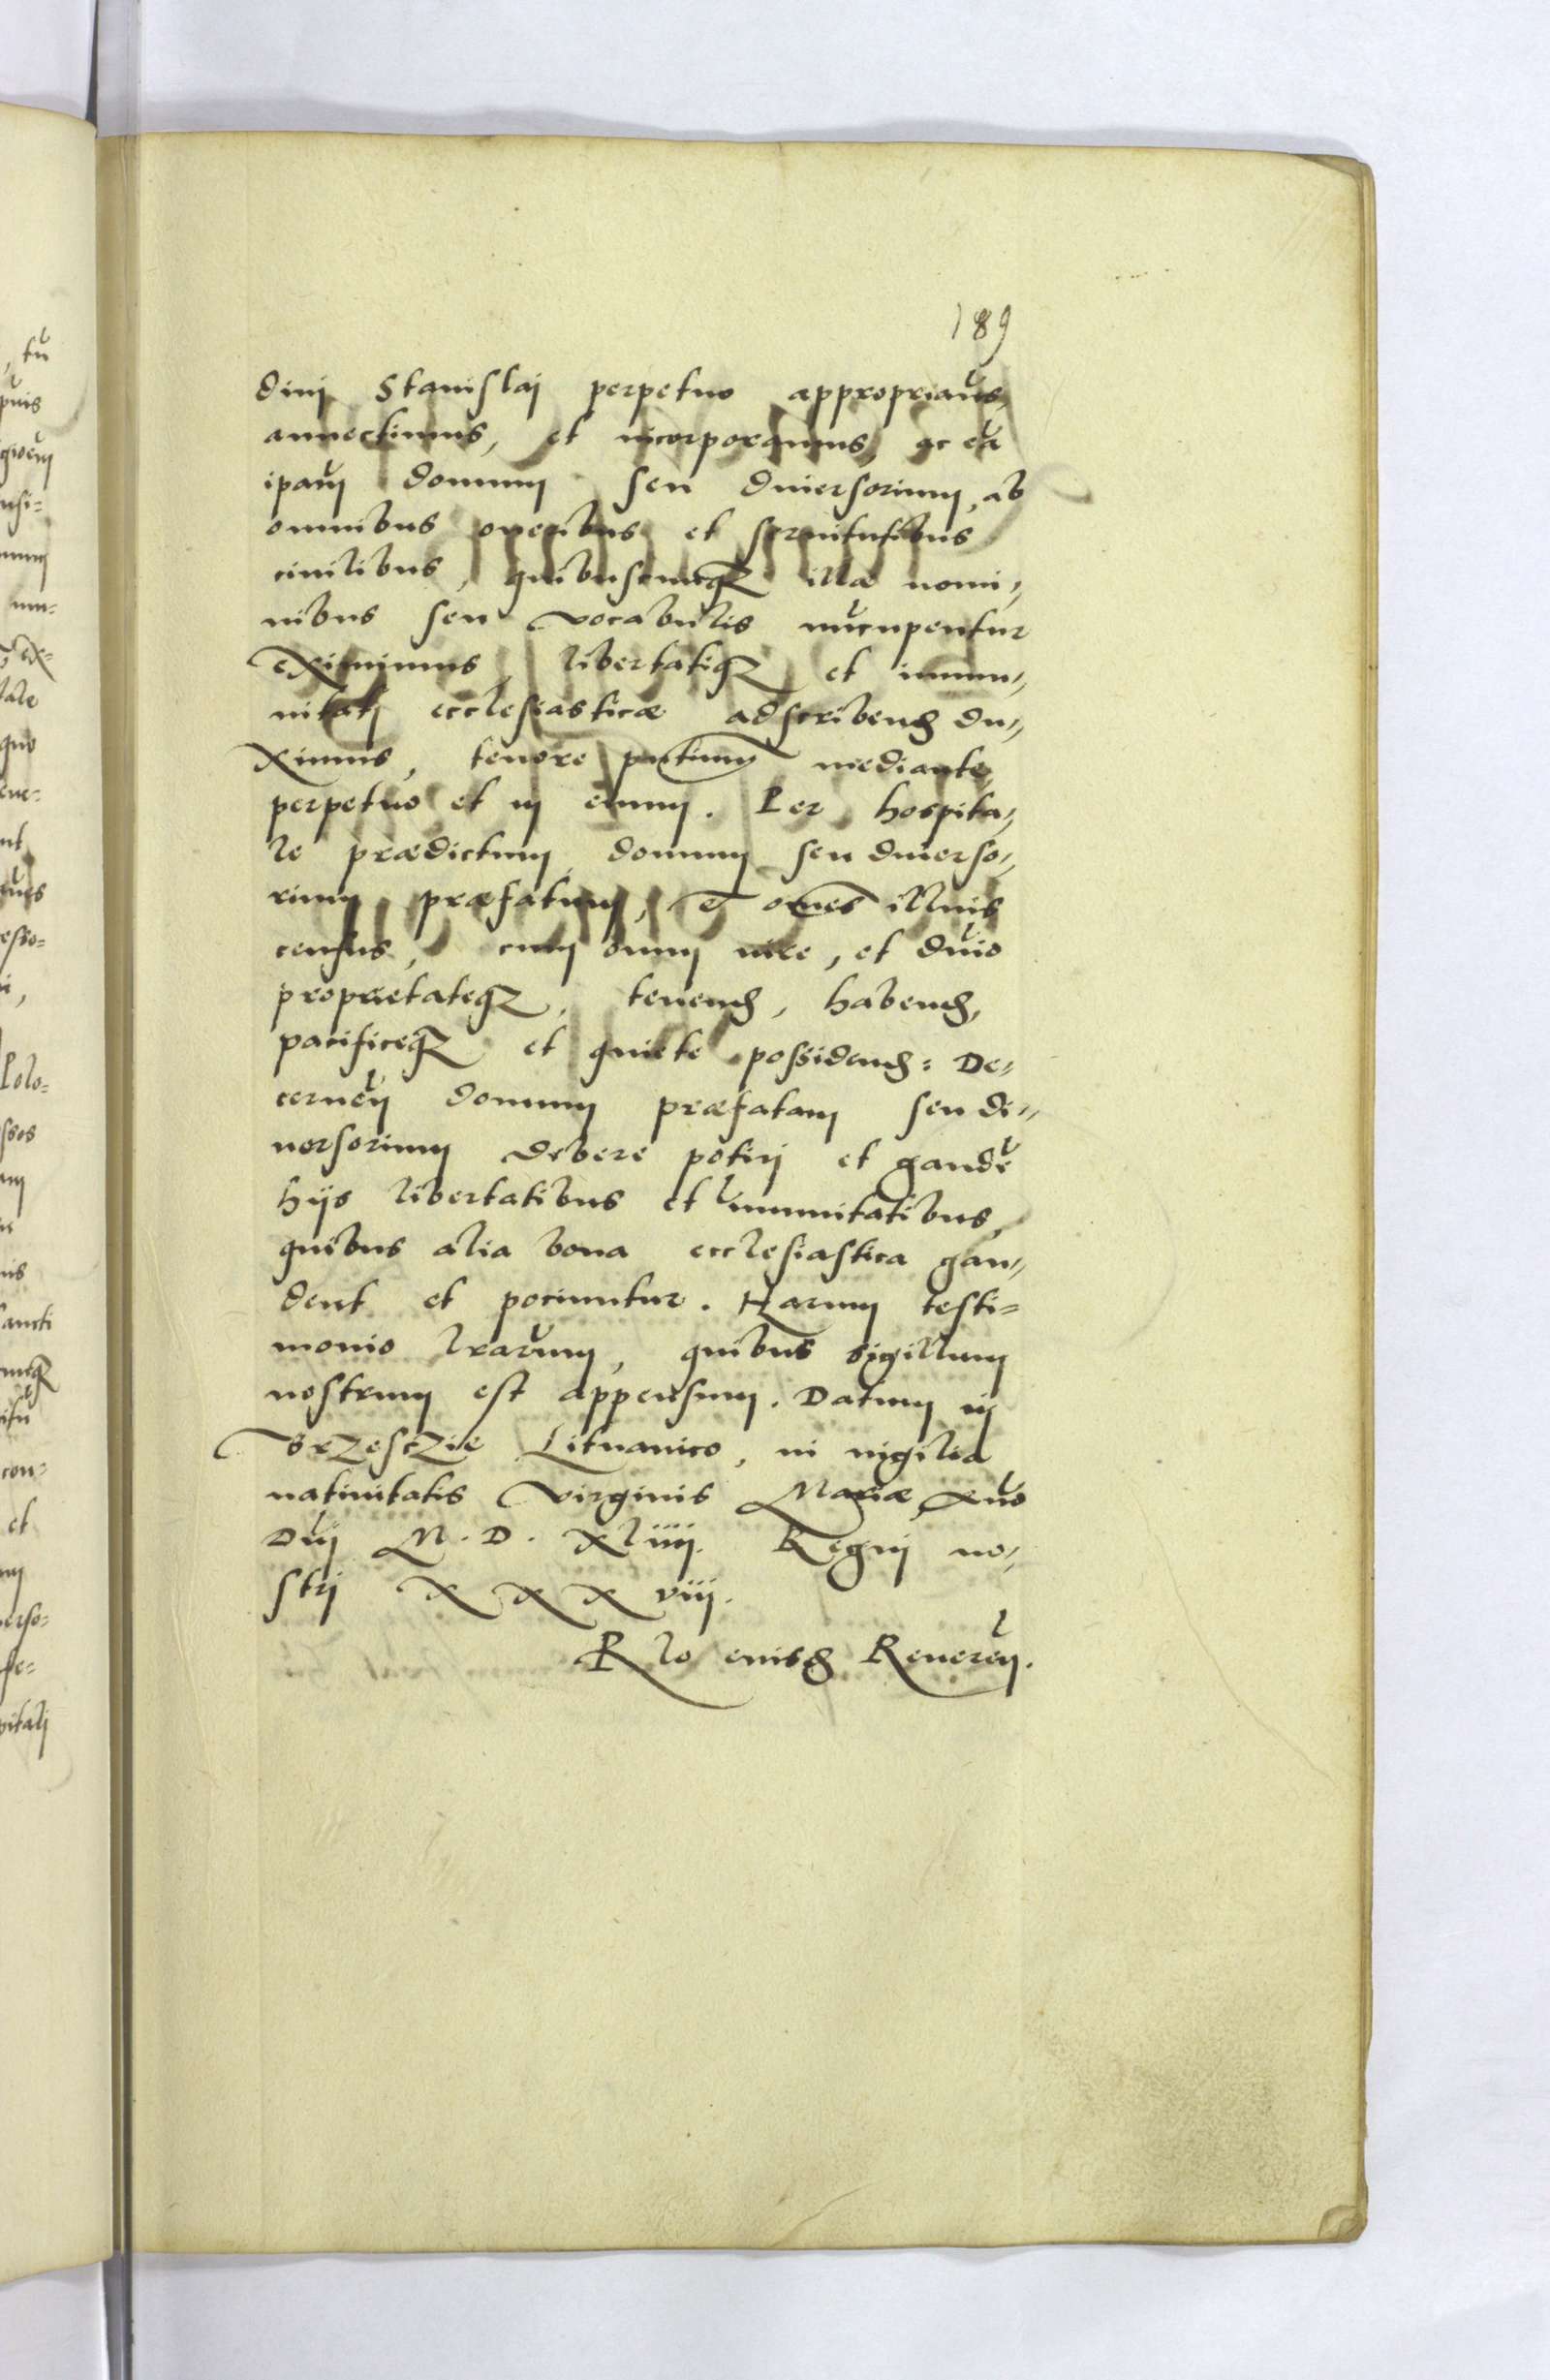 189
diui Stanislaj perpetuo appropriaũs,
annectimus, et incorporamus, ac eã
ipam̃ domum seu diuersorium, ab
omnibus oneribus et seruitutibus
ciuilibus, quibuscunqꝫ illæ nomi„
nibus seu vocabulis nũcupentur
Eximimus, libertatiqꝫ et immu„
nitatj ecclesiasticæ adscribendꝭ du„
ximus, tenore pn̄tium mediante
perpetuo et in eum̃. Per hospita„
le prædictum domum seu diuerso„
rium præfatum, et om̃es illius
census, cum om̃i iure, et dñio
proprietateqꝫ, tenendꝭ, habendꝭ,
pacificeqꝫ et quiete possidendꝭ: De„
cerneñ domum præfatam seu di„
uersorium debere potirj et gaudẽ
hijs libertatibus et ĩmunitatibus,
quibus alia bona ecclesiastica gau„
dent et pociuntur. Harum testi=
monio lrarũm, quibus sigillum
nostrum est appensum. Datum in
Brzesczie Lituanico, in uigilia
natiuitatis Virginis Mariæ, Añno
Dñj M. D. xliiij. Regnj no„
strj X X X viij.
Rlo eiusdꝭ Reuereñ.
tũ
=
Polo=
sancti
con=
et
erso=
pitalj